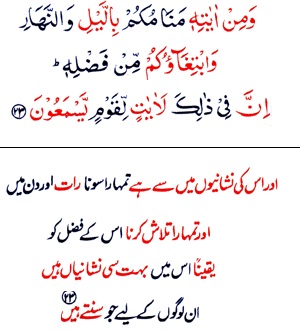 وَمِنْ اٰيٰتِهٖ مَنَامُكُمْ بِالَّيْلِ وَالنَّهَارِ
وَابْتِغَآؤُكُمْ مِّنْ فَضْلِهٖ ؕ
اِنَّ فِيْ ذٰلِكَ لَاٰيٰتٍ لِّقَوْمٍ يَّسْمَعُوْنَ ﴿۲۳﴾
اور اس کی نشانیوں میں سے ہے تمہارا سونا رات اور دن میں
اور تمہارا تلاش کرنا اس کے فضل کو
یقیناً اس میں بہت سی نشانیاں ہیں
ان لوگوں کے لیے جو سنتے ہیں ﴿۲۳﴾